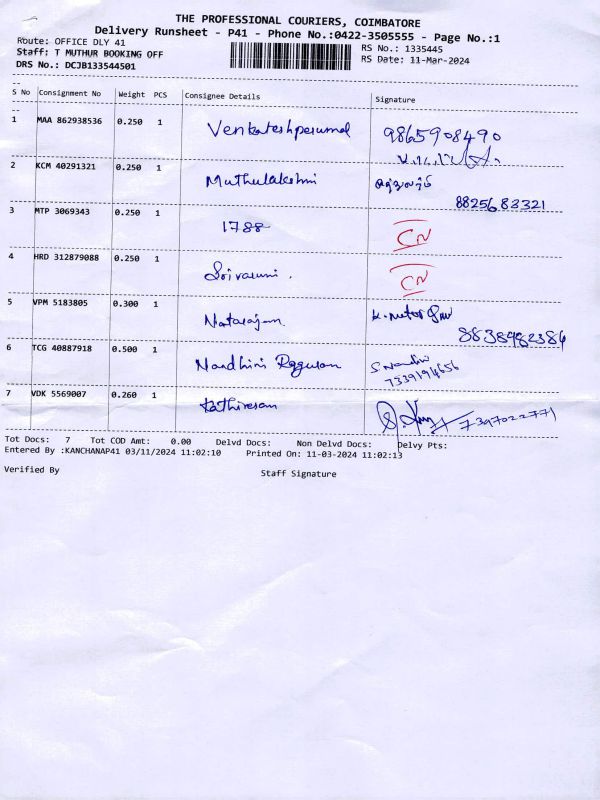 THE PROFESSIONAL COURIERS, COIMBATORE
Delivery Runsheet - P41 - Phone No.:0422-3505555 - Page No.:1
Route: OFFICE DLY 41
Staff: T MUTHUR BOOKING OFF
DRS No.: DCJB133544501
RS No.: 1335445
RS Date: 11-Mar-2024
S No Consignment No Weight PCS Consignee Details Signature
1 MAA 862938536 0.250 1 Venkateshperumal 9865908490
2 KCM 40291321 0.250 1 Muthulakshmi
8825683321
3 MTP 3069343 0.250 1 1788 CN
4 HRD 312879088 0.250 1 CN
5 VPM 5183805 0.300 1 Natarajan
8838982384
6 TCG 40887918 0.500 1 Nandhini Raguram
7339194656
7 VDK 5569007 0.260 1 Kathiresan 7397022771
Tot Docs: 7 Tot COD Amt: 0.00 Delvd Docs: Non Delvd Docs: Delvy Pts:
Entered By :KANCHANAP41 03/11/2024 11:02:10 Printed On: 11-03-2024 11:02:13
Verified By Staff Signature